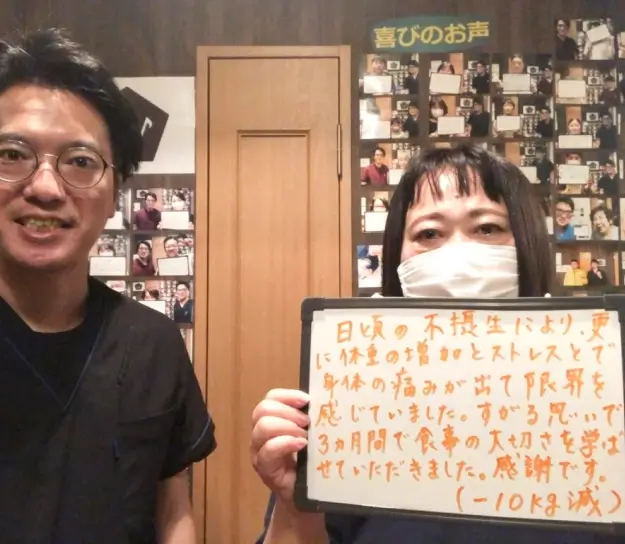 喜びのお声
日頃の不摂生により、更
に体重の増加とストレスとで
身体の痛みが出て限界を
感じていました。すがる思いで
3ヵ月間で食事の大切さを学ば
せていただきました。感謝です。
(-10kg減)